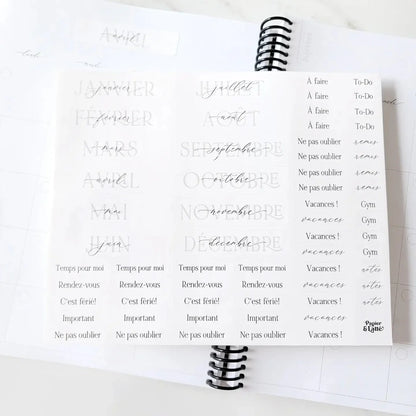 AVRIL avril
JANVIER janvier JUILLET juillet À faire To-Do
À faire To-Do
FÉVRIER février AOÛT août À faire To-Do
À faire To-Do
MARS mars SEPTEMBRE septembre Ne pas oublier remis
Ne pas oublier remis
AVRIL avril OCTOBRE octobre Ne pas oublier remis
Ne pas oublier remis
MAI mai NOVEMBRE novembre Vacances ! Gym
vacances Gym
JUIN juin DÉCEMBRE décembre Vacances ! Gym
vacances Gym
Temps pour moi Temps pour moi Temps pour moi Temps pour moi Vacances ! notes
Rendez-vous Rendez-vous Rendez-vous Rendez-vous vacances notes
C'est férié! C'est férié! C'est férié! C'est férié! Vacances ! notes
Important Important Important Important vacances
Ne pas oublier Ne pas oublier Ne pas oublier Ne pas oublier Vacances ! Papier & Latte